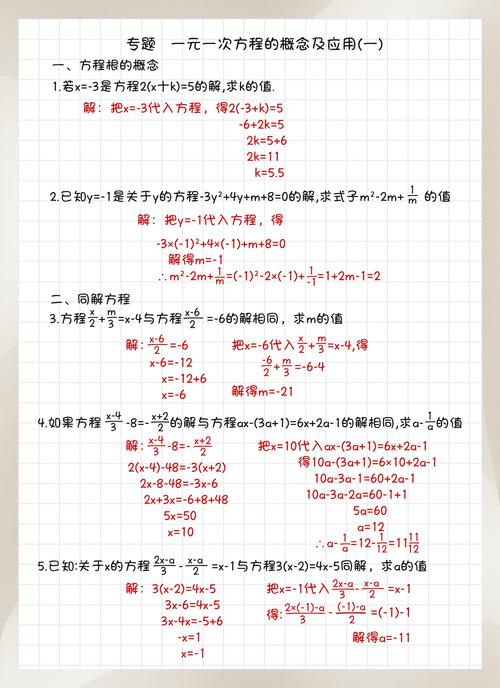 专题 一元一次方程的概念及应用(一)
一、方程根的概念
1.若x=-3是方程2(x十k)=5的解,求k的值.
解：把x=-3代入方程，得2(-3+k)=5
-6+2k=5
2k=5+6
2k=11
k=5.5
2.已知y=-1是关于y的方程-3y²+4y+m+8=0的解,求式子m²-2m+1/m 的值
解：把y=-1代入方程，得
-3×(-1)²+4×(-1)+m+8=0
解得m=-1
∴m²-2m+1/m=(-1)²-2×(-1)+1/-1=1+2m-1=2
二、同解方程
3.方程x/2+m/3=x-4与方程x-6/2=-6的解相同，求m的值
解:x-6/2=-6
x-6=-12
x=-12+6
x=-6
把x=-6代入x/2+m/3=x-4,得
-6/2+m/3=-6-4
解得m=-21
4.如果方程x-4/3-8=-x+2/2的解与方程ax-(3a+1)=6x+2a-1的解相同,求a-1/a的值
解:x-4/3-8=-x+2/2
2(x-4)-48=-3(x+2)
2x-8-48=-3x-6
2x+3x=-6+8+48
5x=50
x=10
把x=10代入ax-(3a+1)=6x+2a-1
得10a-(3a+1)=6×10+2a-1
10a-3a-1=60+2a-1
10a-3a-2a=60-1+1
5a=60
a=12
∴a-1/a=12-1/12=11 11/12
5.已知:关于x的方程2x-a/3-x-a/2=x-1与方程3(x-2)=4x-5同解，求a的值
解：3(x-2)=4x-5
3x-6=4x-5
3x-4x=-5+6
-x=1
x=-1
把x=-1代入2x-a/3-x-a/2=x-1
得:2×(-1)-a/3-(-1)-a/2=(-1)-1
解得a=-11